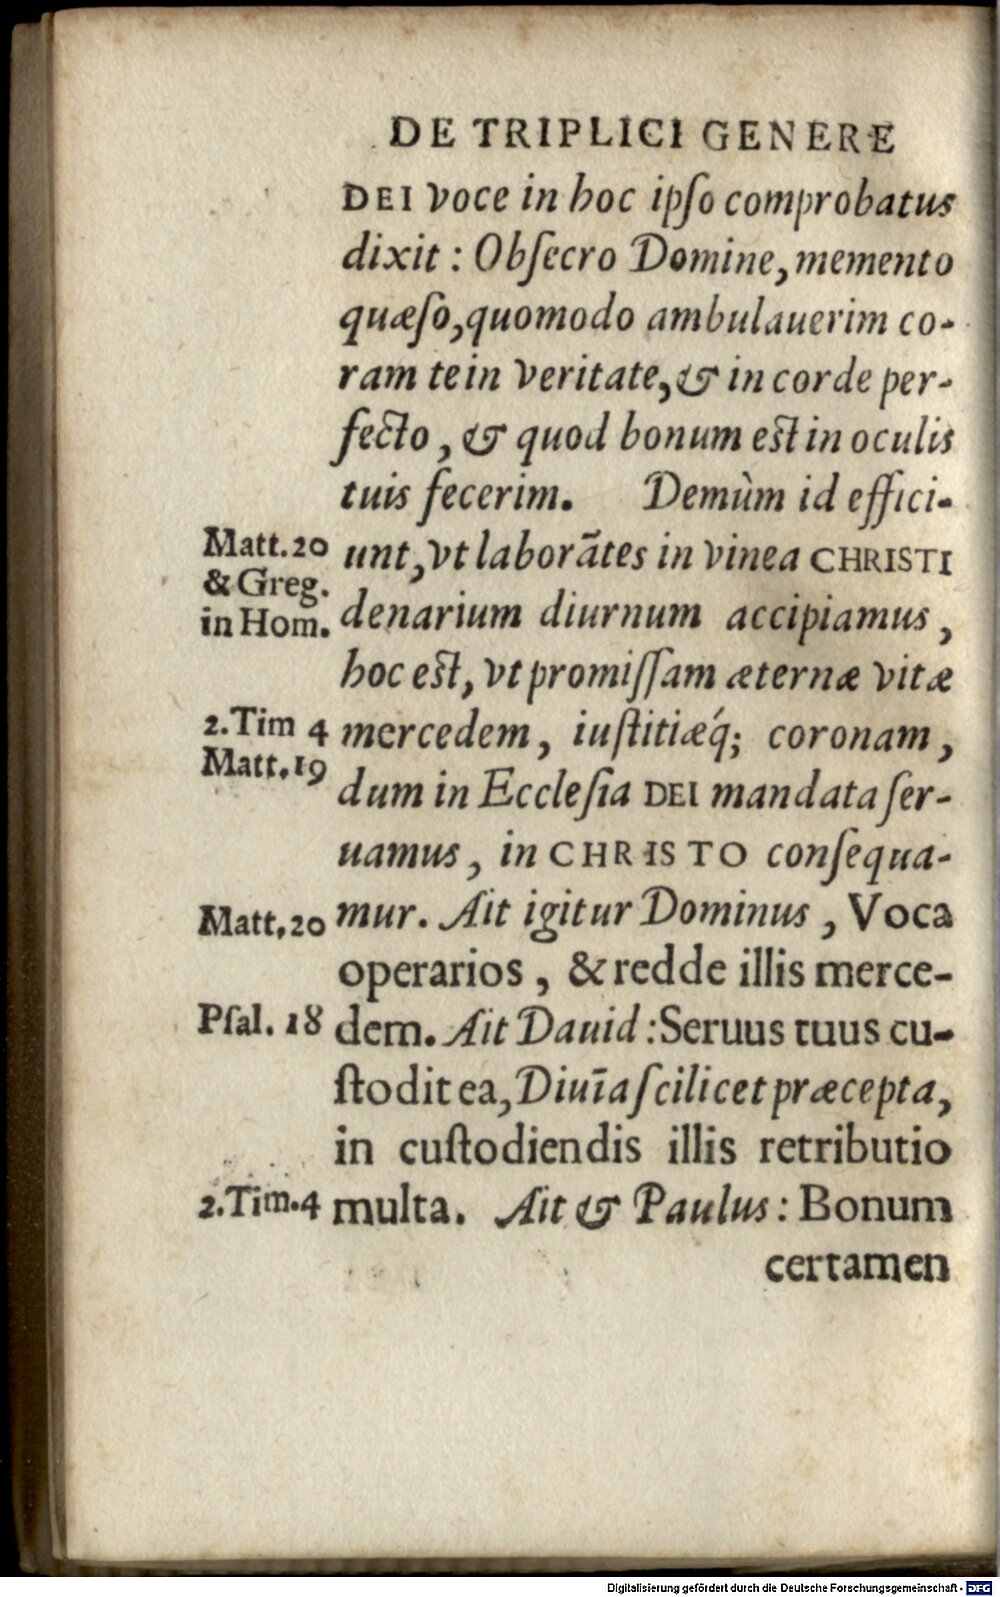 DE TRIPLICI GENERE
DEI voce in hoc ipſo comprobatus
dixit : Obſecro Domine, memento
quæſo, quomodo ambulauerim co-
ram te in veritate, & in corde per-
fecto, & quod bonum est in oculis
tuis fecerim. Demùm id effici-
Matt. 20
& Greg.
in Hom.
unt, vt laborātes in vinea CHRISTI
denarium diurnum accipiamus,
hoc est, vt promiſſam æternæ vitæ
2. Tim 4
Matt. 19
mercedem, iuſtitiæq́; coronam,
dum in Eccleſia DEI mandata ſer-
uamus, in CHRISTO conſequa-
Matt. 20
mur. Ait igitur Dominus, Voca
operarios, & redde illis merce-
Pſal. 18
dem. Ait Dauid : Seruus tuus cu-
ſtodit ea, Diuīa ſcilicet præcepta,
in cuſtodiendis illis retributio
2. Tim. 4
multa. Ait & Paulus : Bonum
certamen
Digitalisierung gefördert durch die Deutsche Forschungsgemeinschaft - DFG